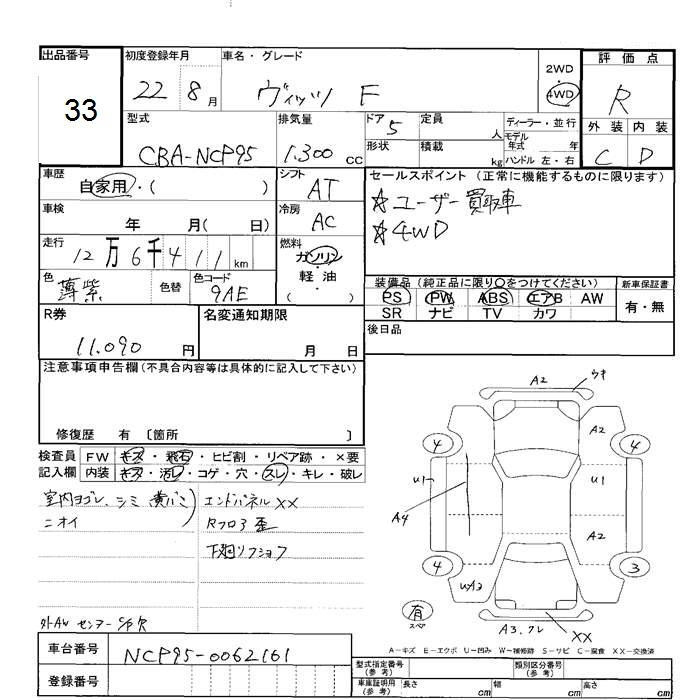 出品番号 初度登録年月 車名・グレード 評価点
33 22 8月 ヴィッツ F 2WD 4WD R
型式 排気量 ドア 5 定員 人 ディーラー・並行 外装 内装
CBA-NCP95 1.300 cc 形状 積載 kg モデル年式 年 ハンドル 左・右 C D
車歴 自家用・( ) シフト AT セールスポイント (正常に機能するものに限ります)
車検 年 月( 日) 冷房 AC ☆ユーザー買取車
走行 12万6千411km 燃料 ガソリン・軽油・( ) ☆4WD
色 薄紫 色替 色コード 9AE 装備品(純正品に限り〇をつけてください) 新車保証書
PS PW ABS エアB AW 有・無
SR ナビ TV カワ
R券 11.090円 名変通知期限 月 日 後日品
注意事項申告欄(不具合内容等は具体的に記入して下さい)
修復歴 有 〔箇所 〕
検査員 FW キズ・飛石・ヒビ割・リペア跡・×要
記入欄 内装 キズ・汚レ・コゲ・穴・スレ・キレ・破レ
室内ヨゴレ、シミ エンドパネルXX
ニオイ Rフロア歪
A2 ウキ
4 A2 4
U1 U1
A4 A2
4 UA2 3
有 スペア A3.ワレ XX
A-キズ E-エクボ U-凹み W-補修跡 S-サビ C-腐食 XX-交換済
車台番号 NCP95-0062161
登録番号
型式指定番号(参考) 類別区分番号(参考)
車庫証明用(参考) 長さ cm 幅 cm 高さ cm